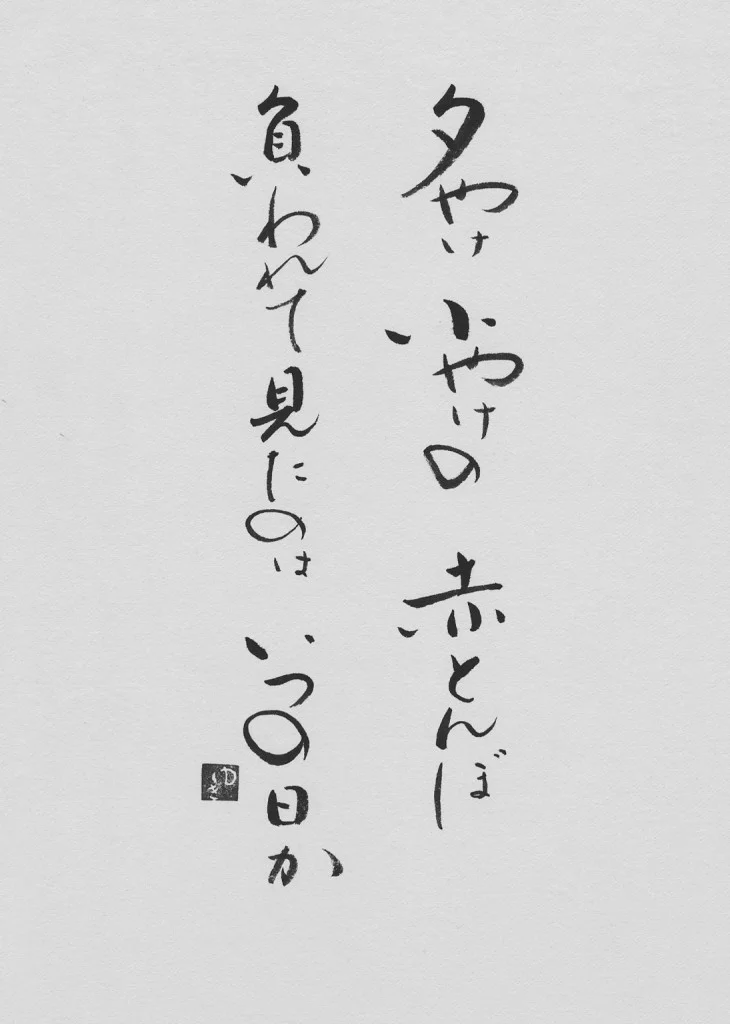 夕やけ 小やけの 赤とんぼ
負われて見たのは いつの日か